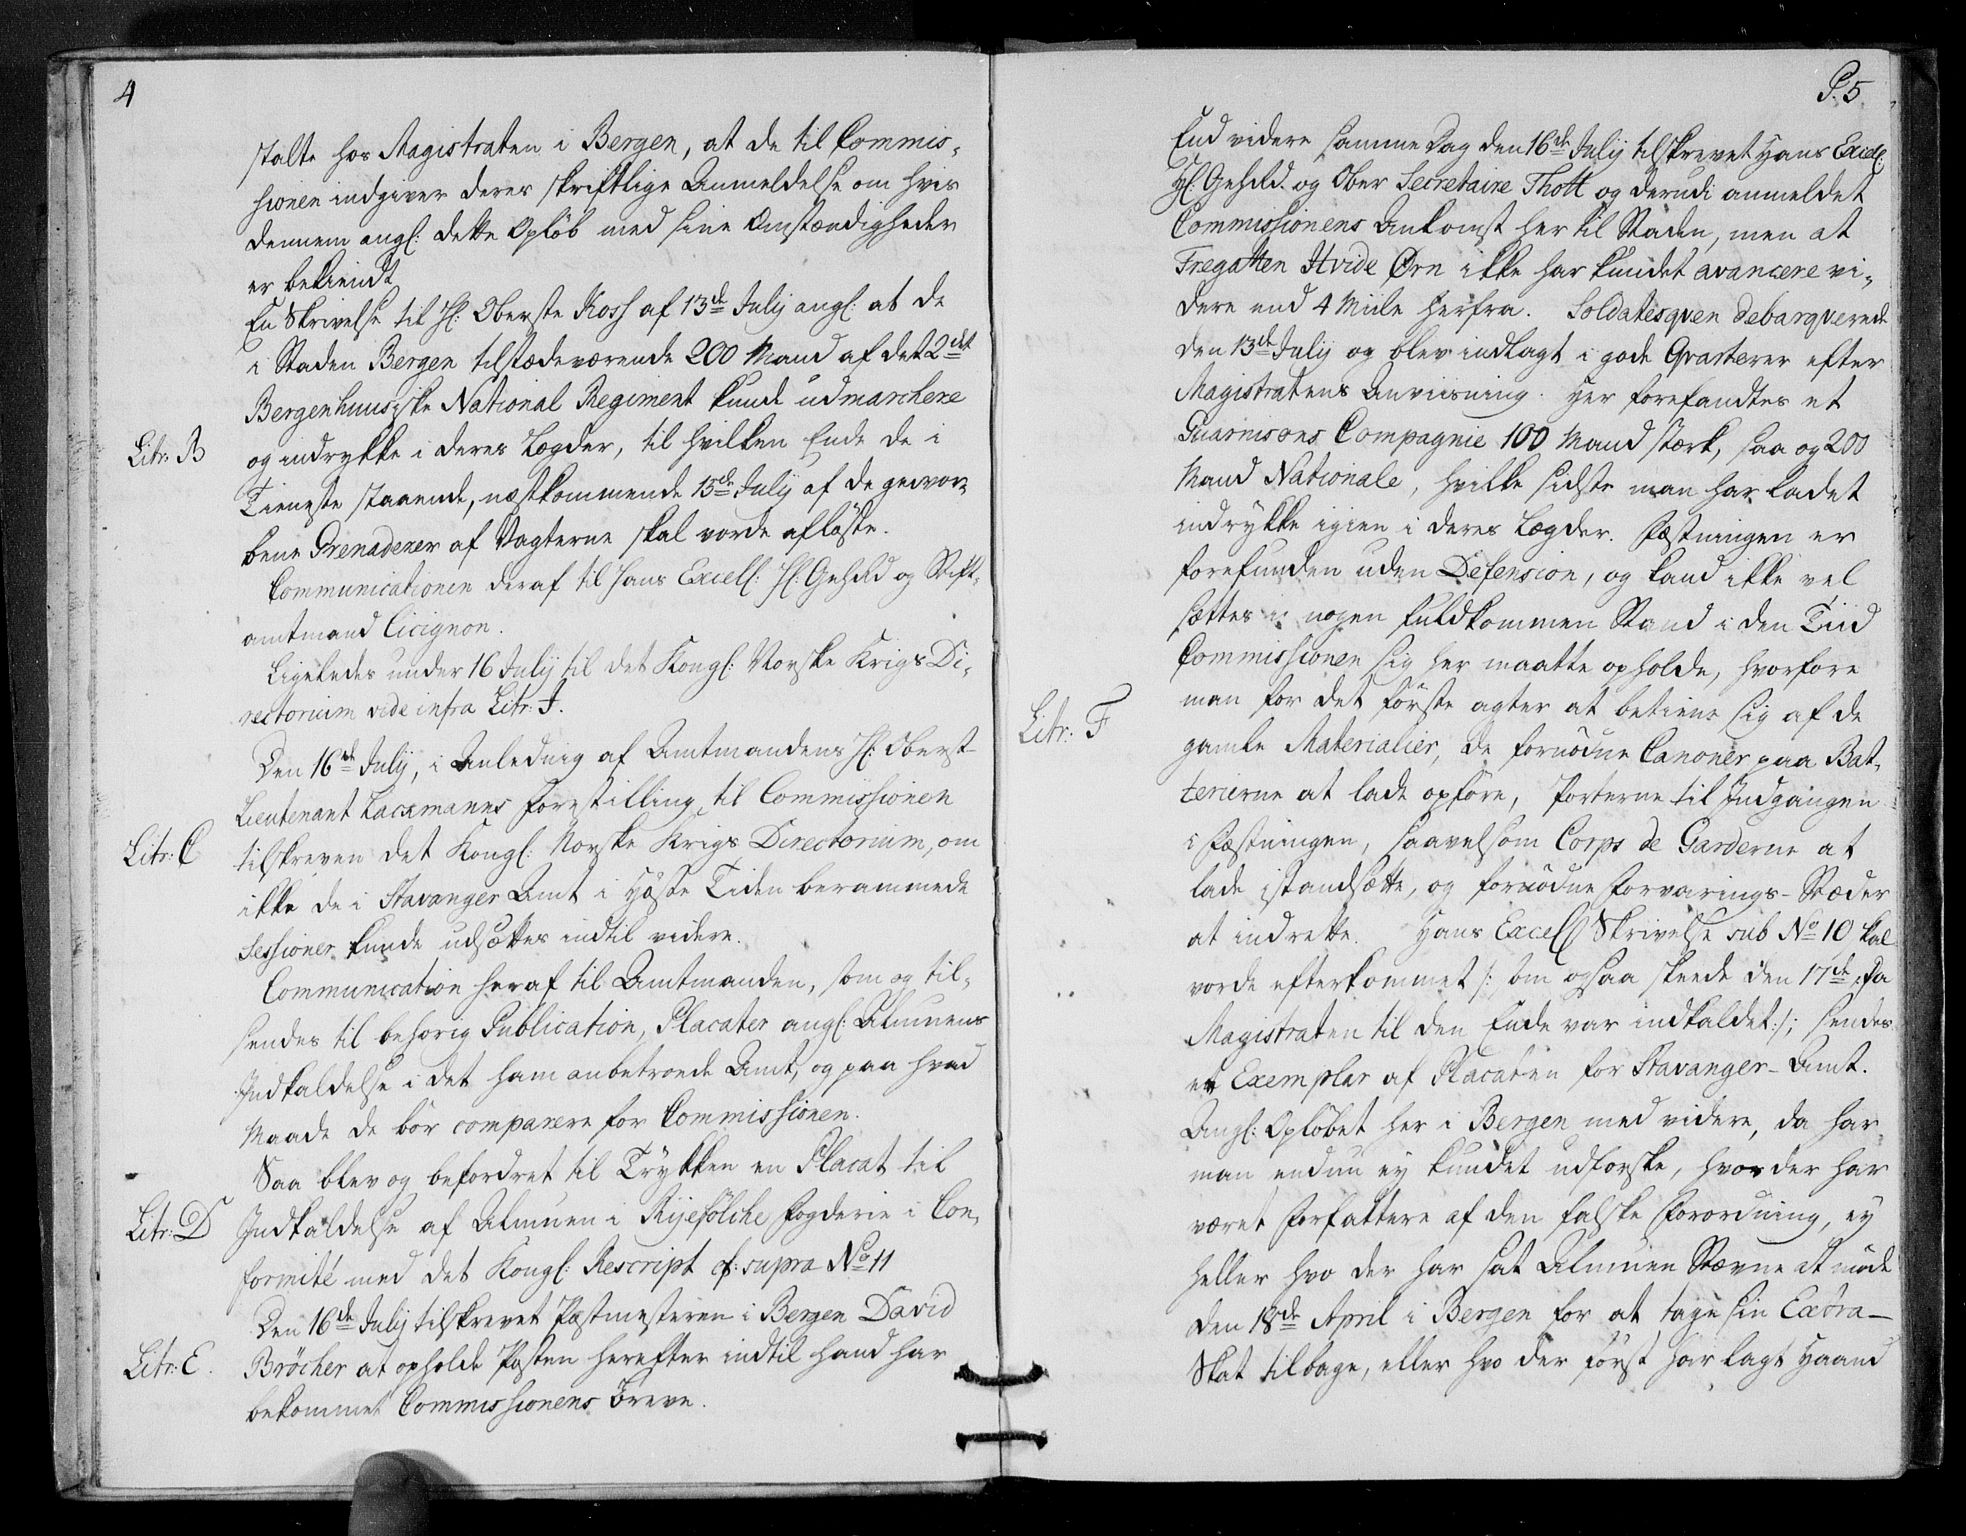 4
stalte hos Magistraten i Bergen, at de til Commis-
sionen indgiver deres skriftlige Anmeldelse om hvis
dennem angl: dette Opløb med sine Omstændigheder
er bekiendt
En Skrivelse til Hl: Oberste Ross af 13de July angl: at de
i Staden Bergen tilstædeværende 200 Mand af det 2det
Bergenhuusiske National Regiment kunde udmarchere
Litr: B og indrykke i deres Lægder, til hvilken Ende de i
Tieneste staaende, næstkommende 15de July af de gevor-
bene Grenaderer af Vagterne skal vorde afløste.
Communicationen deraf til hans Excell: Hl: Gehrd og Stift-
amtmand Cicignon.
Ligeledes under 16 July til det Kongl: Norske Krigs Di-
rectorium vide infra Litr: F.
Den 16de July, i Anledning af Amtmandens Hl: Oberst-
Lieutenant Lachmanns Forestilling til Commissionen
Litr: C tilskreven det Kongl: Norske Krigs Directorium, om
ikke de i Stavanger Amt i Høste Tiden berammede
Sessioner kunde udsættes indtil videre.
Communication heraf til Amtmanden, som og til-
sendes til behörig Publication, Placater angl: Almuens
Indkaldelse i det ham anbetroede Amt, og paa hvad
Maade de bör comparere for Commissionen.
Saa blev og befordret til Trykken en Placat til
Litr: D Indkaldelse af Almuen i Ryefölche Fogderie i Con-
formité med det Kongl: Rescript cf: supra No 11
Den 16de July tilskrevet Postmesteren i Bergen David
Litr: E. Bröcher at opholde Posten herefter indtil hand har
bekommet Commissionens Breve.
P. 5
End videre samme Dag den 16de July tilskrevet Hans Excell:
Hl: Gehrd. og Ober Secretaire Thott og derudi anmeldet
Commissionens Ankomst her til Staden, men at
Fregatten Hvide Ørn ikke har kundet avancere vi-
dere end 4 Miile herfra. Soldatesqven debarqverede
den 13de July og blev indlagt i gode Qvarterer efter
Magistratens Anviisning. Her forefandtes et
Guarnisons Compagnie 100 Mand stærk, saa og 200
Mand Nationale, hvilke sidste man har ladet
indrykke igien i deres Lægder. Fæstningen er
forefunden uden Defension, og kand ikke vel
sættes i nogen fuldkommen Stand i den Tiid
Commissionen sig her maatte opholde, hvorfore
man for det förste agter at betiene sig af de
Litr: F gamle Materialier, de fornödne Canoner paa Bat-
terierne at lade opföre, Porterne til Indgangen
i Fæstningen, saavelsom Corps de Garderne at
lade istandsætte, og fornödne Forvarings-Stæder
at indrette. Hans Excell Skrivelse sub No 10 skal
vorde efterkommet /: som ogsaa skeede den 17de, da
Magistraten til den Ende var indkaldet :/; sendes
et Exemplar af Placaten for Stavanger-Amt.
Angl: Opløbet her i Bergen med videre, da har
man endnu ey kundet udforske, hvor der har
været Forfattere af den falske Forordning, ey
heller hvo der har sat Almuen Stævne at möde
den 18de April i Bergen for at tage sin Extra-
Skat tilbage, eller hvo der först har lagt Haand